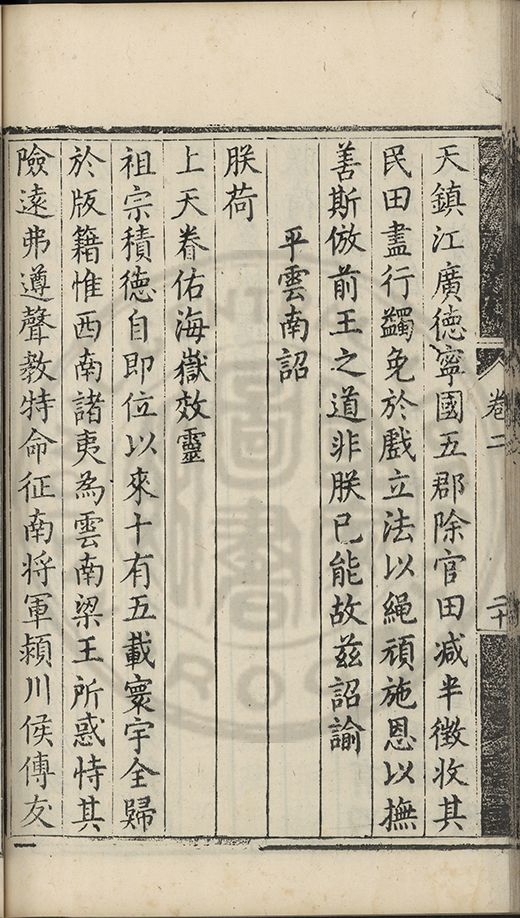 卷二
二十
天鎮江廣德寧國五郡除官田减半徵收其
民田盡行蠲免於戲立法以繩頑施恩以撫
善斯倣前王之道非朕已能故兹詔諭
平雲南詔
朕荷
上天眷佑海嶽效靈
祖宗積德自即位以來十有五載寰宇全歸
於版籍惟西南諸夷為雲南梁王所惑恃其
險遠弗遵聲教特命征南将軍潁川侯傅友